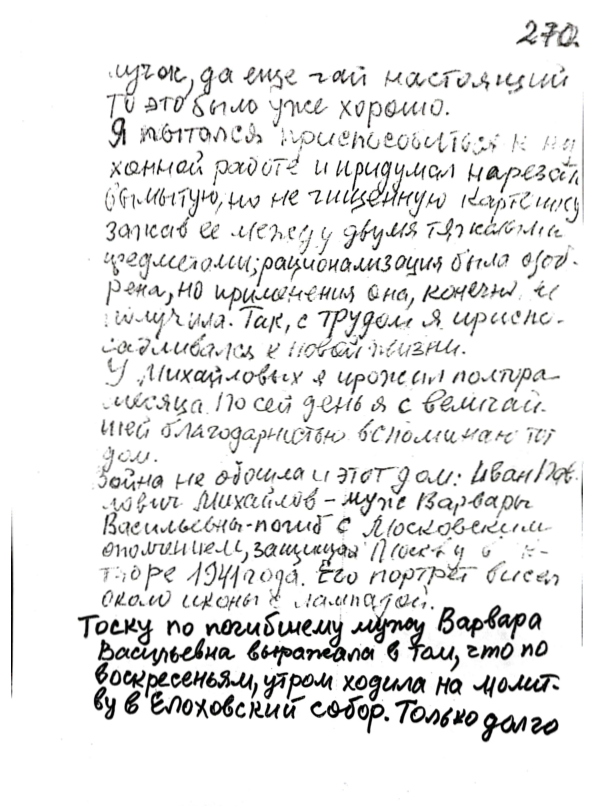 270
лучок, да еще чай настоящий
то это было уже хорошо.
Я пытался приспособиться к ку
хонной работе и придумал нарезать
вымытую, но не чищенную картошку
зажав ее между двумя тяжелыми
предметами; рационализация была одоб-
рена, но применения она, конечно, не
получила. Так, с трудом я приспо-
сабливался к новой жизни.
У Михайловых я прожил полтора
месяца. По сей день я с величай-
шей благодарностью вспоминаю тот
дом.
Война не обошла и этот дом: Иван Пав-
лович Михайлов - муж Варвары
Васильевны - погиб с Московским
ополчением, защищая Москву в ок-
тябре 1941 года. Его портрет висел
около иконы с лампадой.
Тоску по погибшему мужу Варвара
Васильевна выражала в том, что по
воскресеньям, утром ходила на молит-
ву в Елоховский собор. Только долго